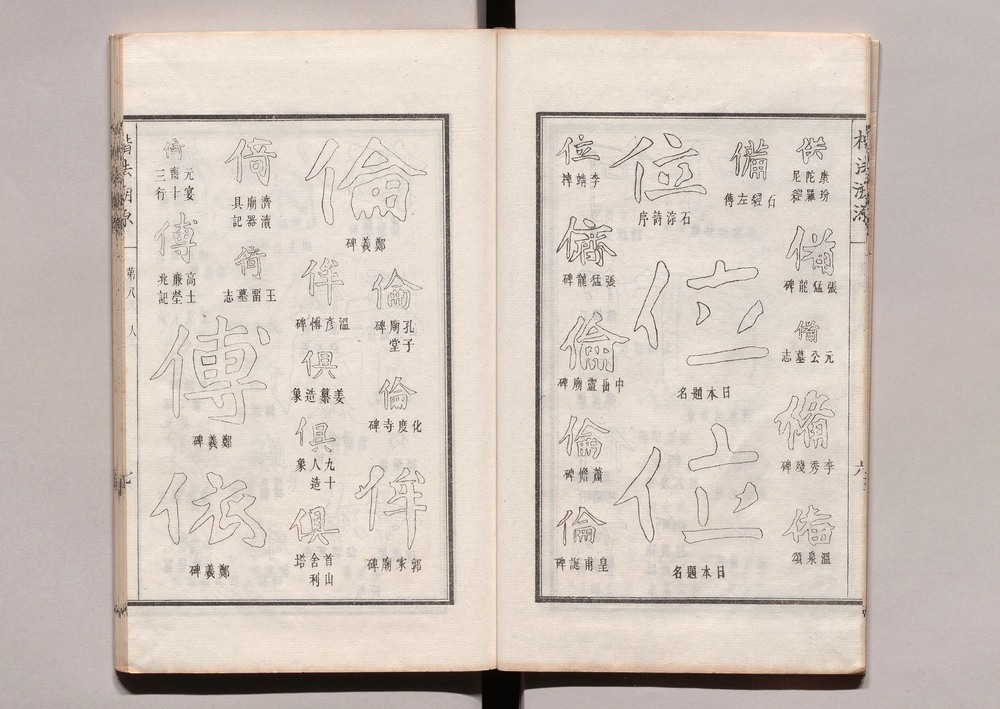 供
康玢
陀羅
尼經
備
張猛龍碑
備
元公墓志
備
李秀殘碑
備
溫泉頌
備
石經左傳
位
石淙詩序
位
日本題名
位
日本題名
位
李靖碑
儕
張猛龍碑
倫
中岳靈廟碑
倫
蕭憺碑
倫
皇甫誕碑
倫
鄭義碑
倫
孔子
廟堂
碑
倫
化度寺碑
侔
郭家廟碑
侔
溫彥博碑
俱
姜纂造象
俱
九十
人造
象
俱
首山
舍利
塔
倚
濟瀆
廟器
具記
倚
王畱墓志
倚
元宴
齋十
三行
傅
高士
廉塋
兆記
傅
鄭義碑
依
鄭義碑
第八
人